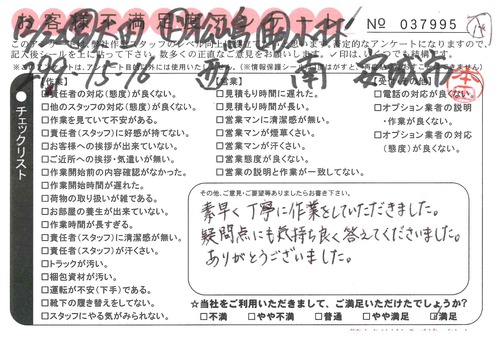 お客様不満足度アンケート
No 037995
記入後シールを上に貼って下さい。数多くの正直なご意見をお願いします。レ印は、いくつでも結構です。
【作業】
□責任者の対応(態度)が良くない。
□他のスタッフの対応(態度)が良くない。
□作業を見ていて不安がある。
□責任者(スタッフ)に好感が持てない。
□お客様への挨拶が出来ていない。
□ご近所への挨拶・気遣いが無い。
□作業開始前の内容確認がなかった。
□作業開始時間が遅れた。
□荷物の取り扱いが雑である。
□お部屋の養生が出来ていない。
□作業時間が長すぎる。
□責任者(スタッフ)に清潔感が無い。
□責任者(スタッフ)が汗くさい。
□トラックが汚い。
□梱包資材が汚い。
□運転が不安(下手)である。
□靴下の履き替えをしてない。
□スタッフにやる気がみられない。
□見積もり時間に遅れた。
□見積もり時間が長い。
□営業マンに清潔感が無い。
□営業マンが煙草くさい。
□営業マンが汗くさい。
□営業態度が良くない。
□営業の説明と作業が一致してない。
□電話の対応が良くない。
□オプション業者の説明
・作業が良くない。
□オプション業者の対応
(態度)が良くない。
チェックリスト
その他、ご意見・ご要望等ありましたらお書き下さい。
素早く丁寧に作業をしていただきました。
疑問点にも気持ち良く答えてくださいました。
ありがとうございました。
☆当社をご利用いただきまして、ご満足いただけたでしょうか？
□不満 □やや不満 □普通 □やや満足 ☑満足